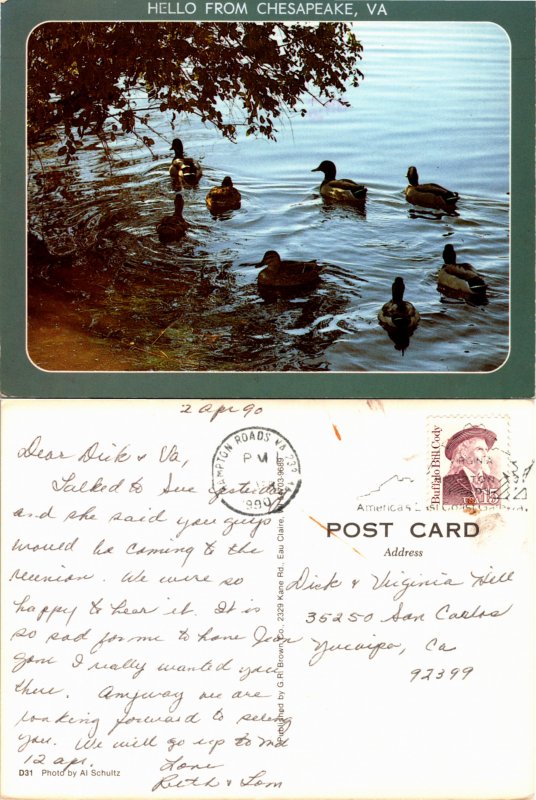 HELLO FROM CHESAPEAKE, VA
2 Apr 90
Dear Dick & Va,
Talked to Sue yesterday
and she said you guys
would be coming to the
reunion. We were so
happy to hear it. It is
so sad for me to have Jean
gone I really wanted you
there. Anyway we are
looking forward to seeing
you. We will go up to Md
12 apr.
Love
Beth & Tom
D31 Photo by Al Schultz
HAMPTON ROADS VA
PM
1990
Published by G.R. Brown Co., 2329 Kane Rd., Eau Claire,
Buffalo Bill Cody
America's East Coast
POST CARD
Address
Dick & Virginia Hill
35250 San Carlos
Yucaipa, Ca
92399